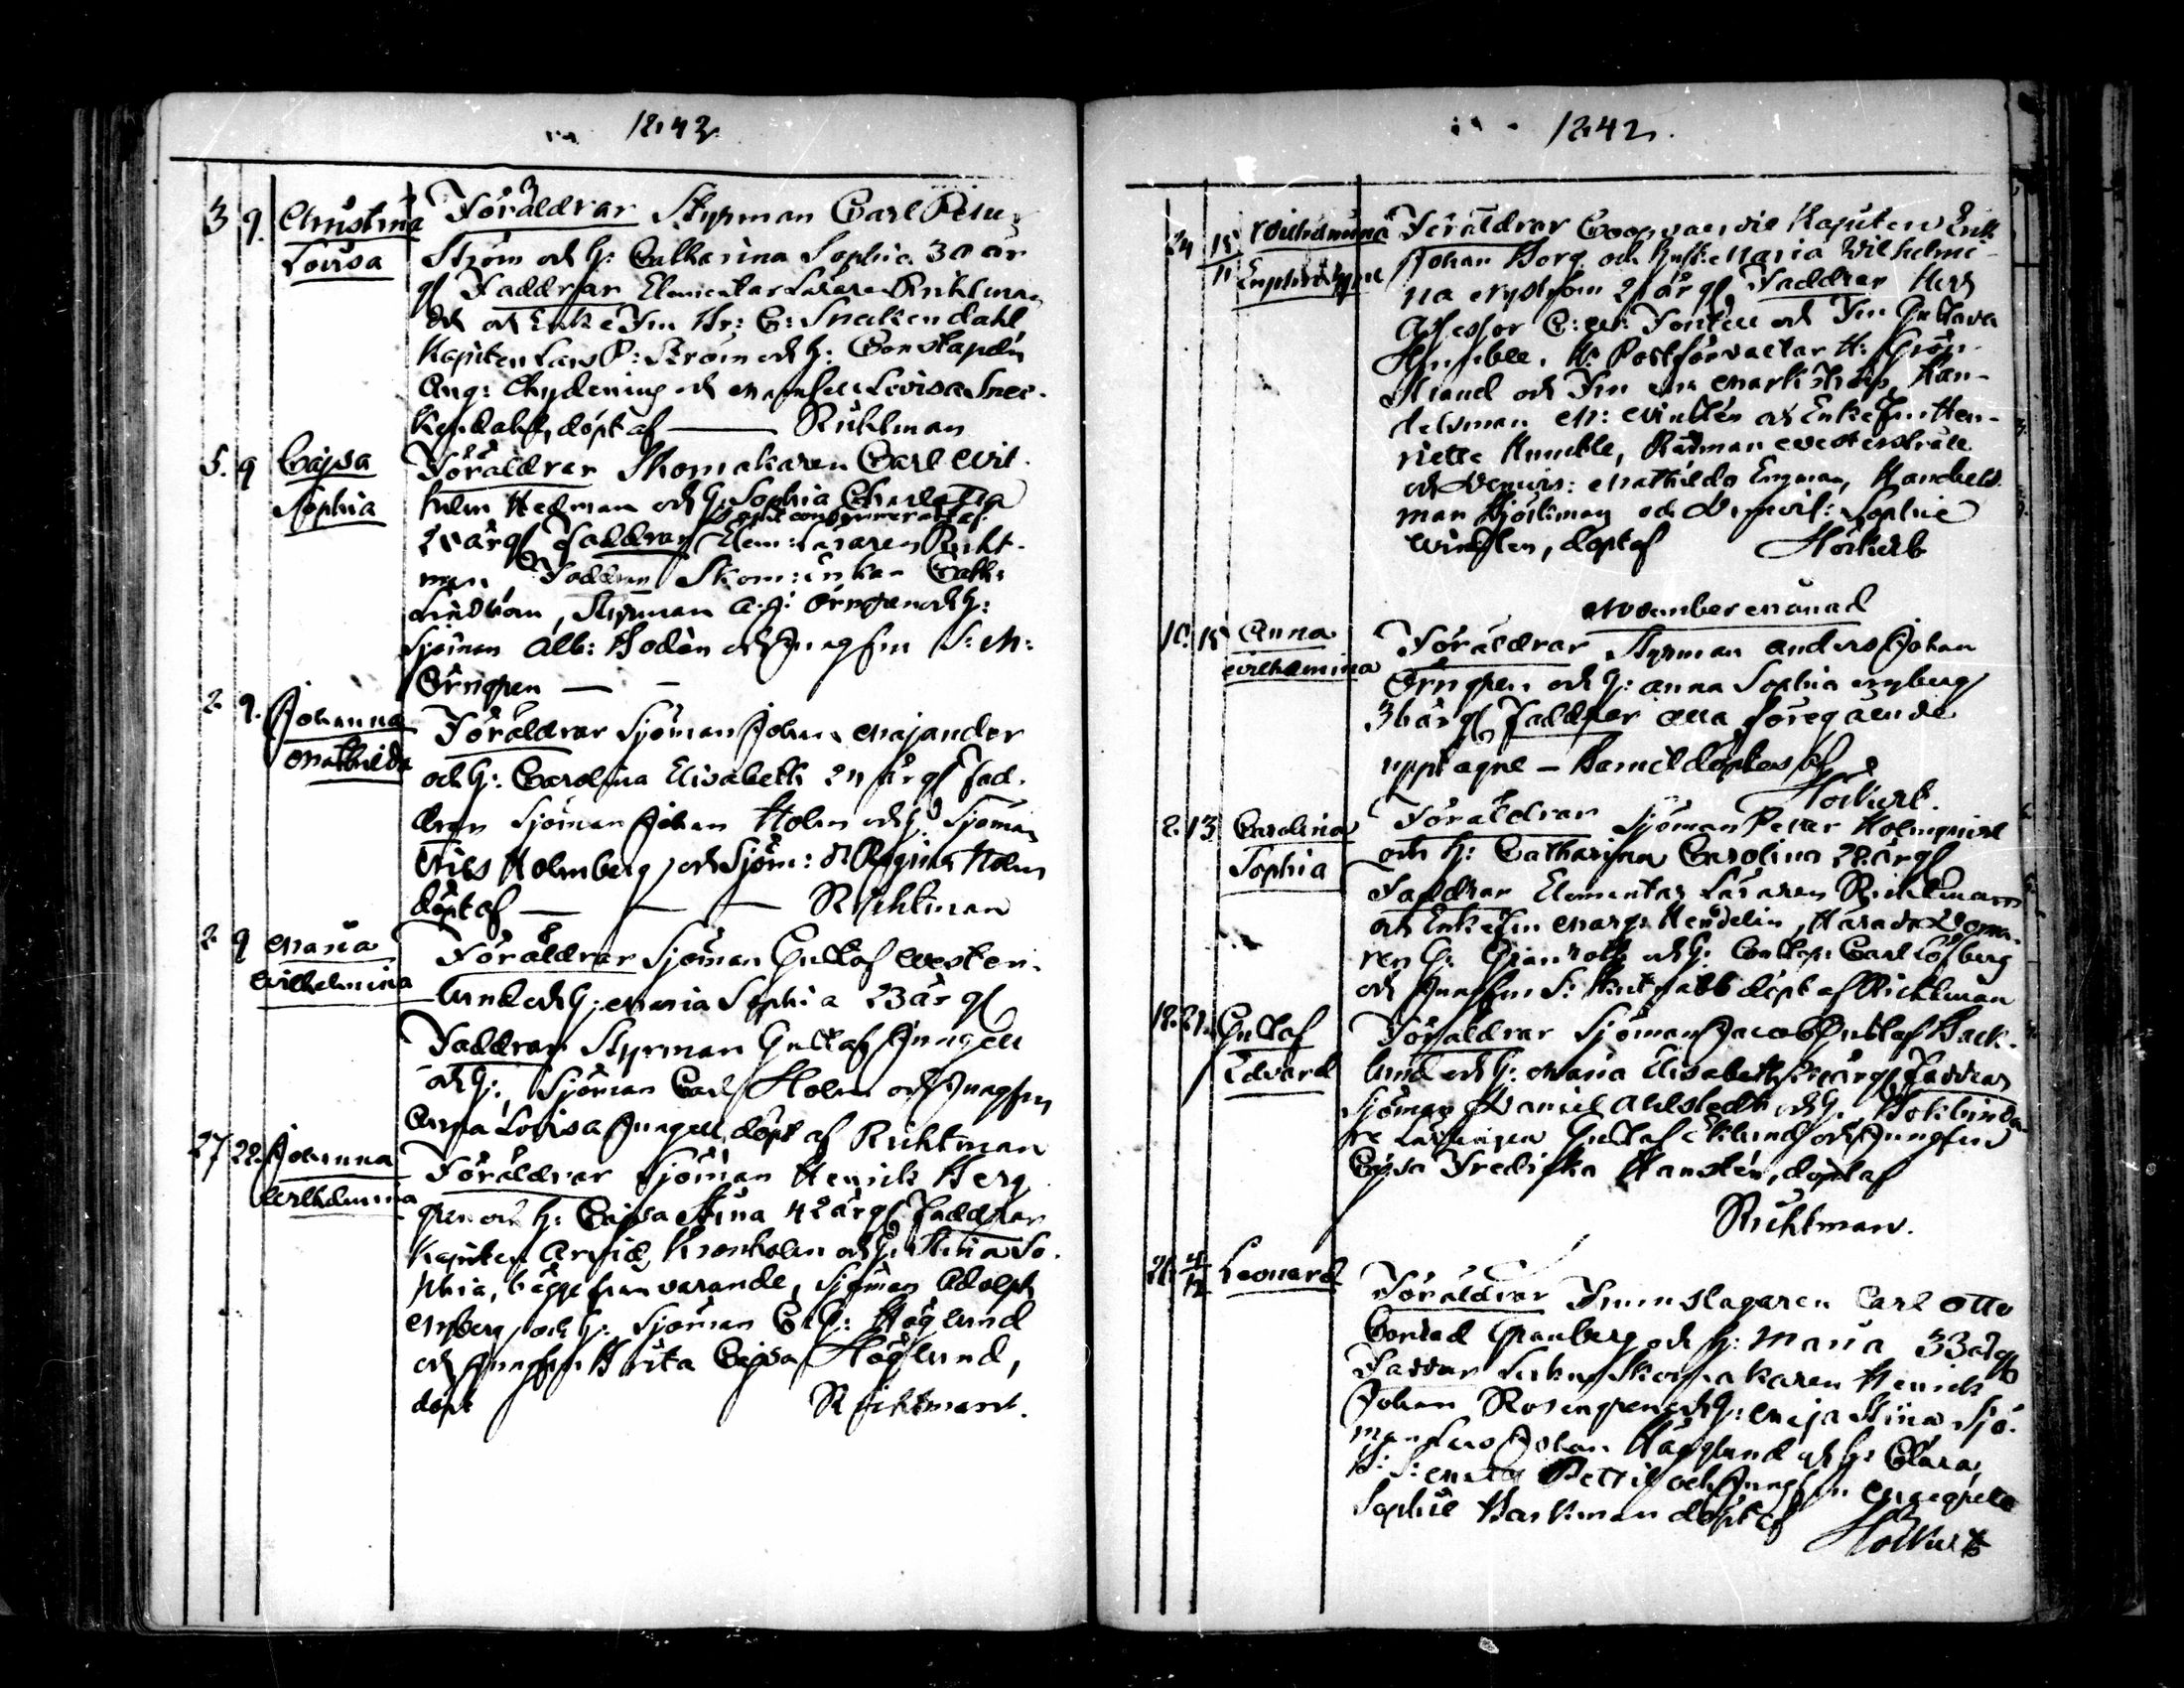 1842.
3 9. Christina Föräldrar Styrman Carl Petter
Lovisa Ström och h: Catharina Sophia 30 år
gl Faddrar Elementar Läraren Ruthman
och Enke Fru Br: C: Sneckendahl
Kapiten Lars P: Ström och h: Constapeln
Aug: Chydenius och Mamsell Lovisa Snec-
kendahl, döpt af — Rúhtman
5. 9 Cajsa Föräldrar Skomakaren Carl Wil-
Sophia helm Hedman och h: Sophia Charlotta
år gl Faddrar Elem: Läraren Ruht-
man Faddrar Skom: enkan Cath:
Lindbom, Styrman A: J: Örngren och h:
Sjöman Alb: Bodén och Jungfru S: M:
Örngren — —
2. 9. Johanna Föräldrar Sjöman Johan Majander
Mathilda och h: Carolina Elisabeth år gl Fad-
drar Sjöman Johan Holm och h: Sjöman
Nils Holmberg, och Sjöm: d: Regina Holm
döpt af — — — Rúhtman
2 9 Maria Föräldrar Sjöman Gustaf Wester-
Wilhelmina lund och h: Maria Sophia 23 år gl
Faddrar Styrman Gustaf Jungell
och h:, Sjöman Carl Holm och Jungfru
Anna Lovisa Jungell, döpt af Rúhtman
27 28. Johanna Föräldrar Sjöman Henrik Berg
Wilhelmina gren och h: Cajsa Stina 42 år gl Faddrar
Kapiten Arvid Kronholm och h: Stina So-
phia, bägge frånvarande, Sjöman Adolph
Nyberg och h: Sjöman C: G: Höglund
och Jungfru Brita Cajsa Höglund,
döpt Rúhtman.
1842.
24 15/11 Wilhelmina Föräldrar Coopvaerdie Kapiten Erik
Euphrosyne Johan Borg och hust: Maria Wilhelmi-
na Nyström 21 år gl. Faddrar Herr
Assessor C: W: Fontell och Fru Gustava
Humble, Hr Postförvaltar H: Grön-
strand och Fru Han-
delsman M: Winstén och Enke Fru Hen-
riette Humble, Rådman Westerstråle
och Demois: Mathilda Engman, Handels
man Björkman och Demois: Sophie
Winstén, döpt af Höckert
November Månad
10. 15 Anna Föräldrar Styrman Anders Johan
Wilhelmina Örngren och h: Anna Sophia Nyberg
36 år gl Faddrar alla föregående
upptagne — Barnet döptes af
Höckert.
2. 13 Carolina Föräldrar Sjöman Petter Holmqvist
Sophia och h: Catharina Carolina 28 år gl
Faddrar Elementar Läraren Ruhtman
och Enke Fru Marg: Hendelin, Härads Doma-
ren G: Granroth och h: Carl Löfberg
och Jungfru S: döpt af Rúhtman
18. 21. Gustaf Föräldrar Sjöman Jacob Gustaf Back-
Edvard lund och h: Maria Elisabeth år gl Faddrar
Sjöman Daniel Ahlstedt och h:, Bokbinda-
re Lärlingen Gustaf Eklund och Jungfru
Cajsa Fredrika Hanstén, döpt af
Rúhtman.
4/12 Leonard Föräldrar Trumslagaren Carl Otto
Conrad Granberg och h: Maria 33 år gl
Faddrar Skomakaren Henrik
Johan Rosengren och h: Maja Stina Sjö-
man Johan Hägglund och h: Clara,
Pettil och Jungfru Margreta
Sophie Backman döpt af
Höckert